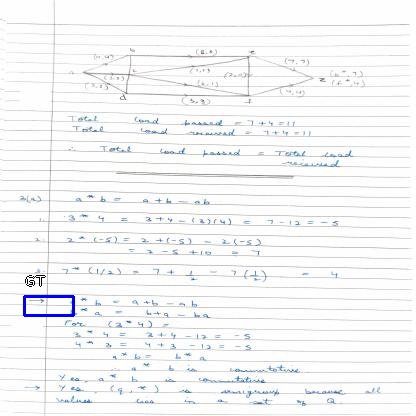 b (8,8) e
(7,7)
c
z (b+, 7)
(f+, 4)
d (3,3) f (4,4)
Total load passed = 7+4=11
Total load received = 7+4=11
∴ Total load passed = Total load
received
3(a) a * b = a+b-ab
1. 3 * 4 = 3+4-(3)(4) = 7-12 = -5
2. 2 * (-5) = 2+(-5) - 2(-5)
= 2-5+10 = 7
3. 7 * (1/2) = 7 + 1/2 - 7(1/2) = 4
GT
→ * b = a+b-ab
* a = b+a-ba
For (3*4) =
3 * 4 = 3+4-12 = -5
4 * 3 = 4+3-12 = -5
a*b = b*a
∴ a*b is commutative
Yes, a*b is commutative
→ Yes, (q,*) is semigroup because all
values lies in a set of Q.